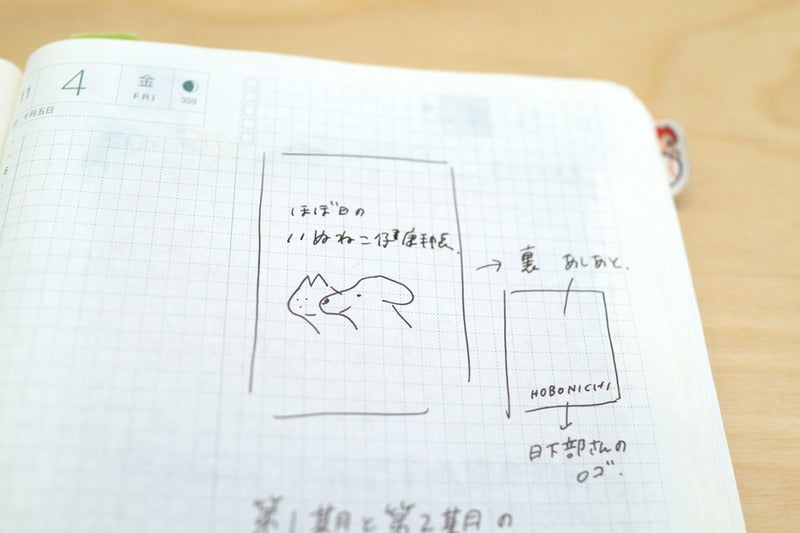 11
4
金
FRI
309
十月五日
6
ほぼ日の
いぬねこ健康手帳
→ 裏 あしあと.
HOBONICHI
日下部さんの
ロゴ.
第1期と第2期の